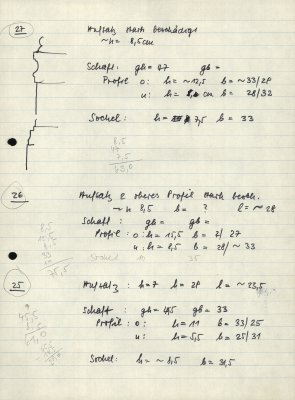 27
Aufsatz stark beschädigt
~h = 8,5 cm
Schaft: gh = 47 gb =
Profil o: h = ~12,5 b = ~33/28
u: h = cm b = 28/32
Sockel: h = 7,5 b = 33
8,5
47
7,5
63,0
26
Aufsatz & oberes Profil stark besch.
~h 8,5 b = ? l = ~28
Schaft: gh = gb =
Profil: o: h = 15,5 b = 2/ 27
u: h = 8,5 b = 28/~33
Sockel 10 35
75,5
25
Aufsatz: h = 7 b = 28 l = ~23,5
Schaft: gh = 48,5 gb = 33
Profil: o: h = 11 b = 33/25
u: h = 5,5 b = 25/31
Sockel: h = ~ 8,5 b = 34,5